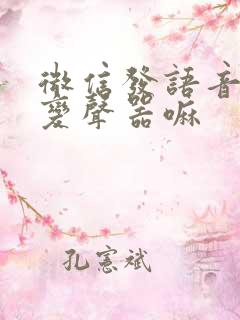 微信發語音
變聲器嘛
孔憲斌